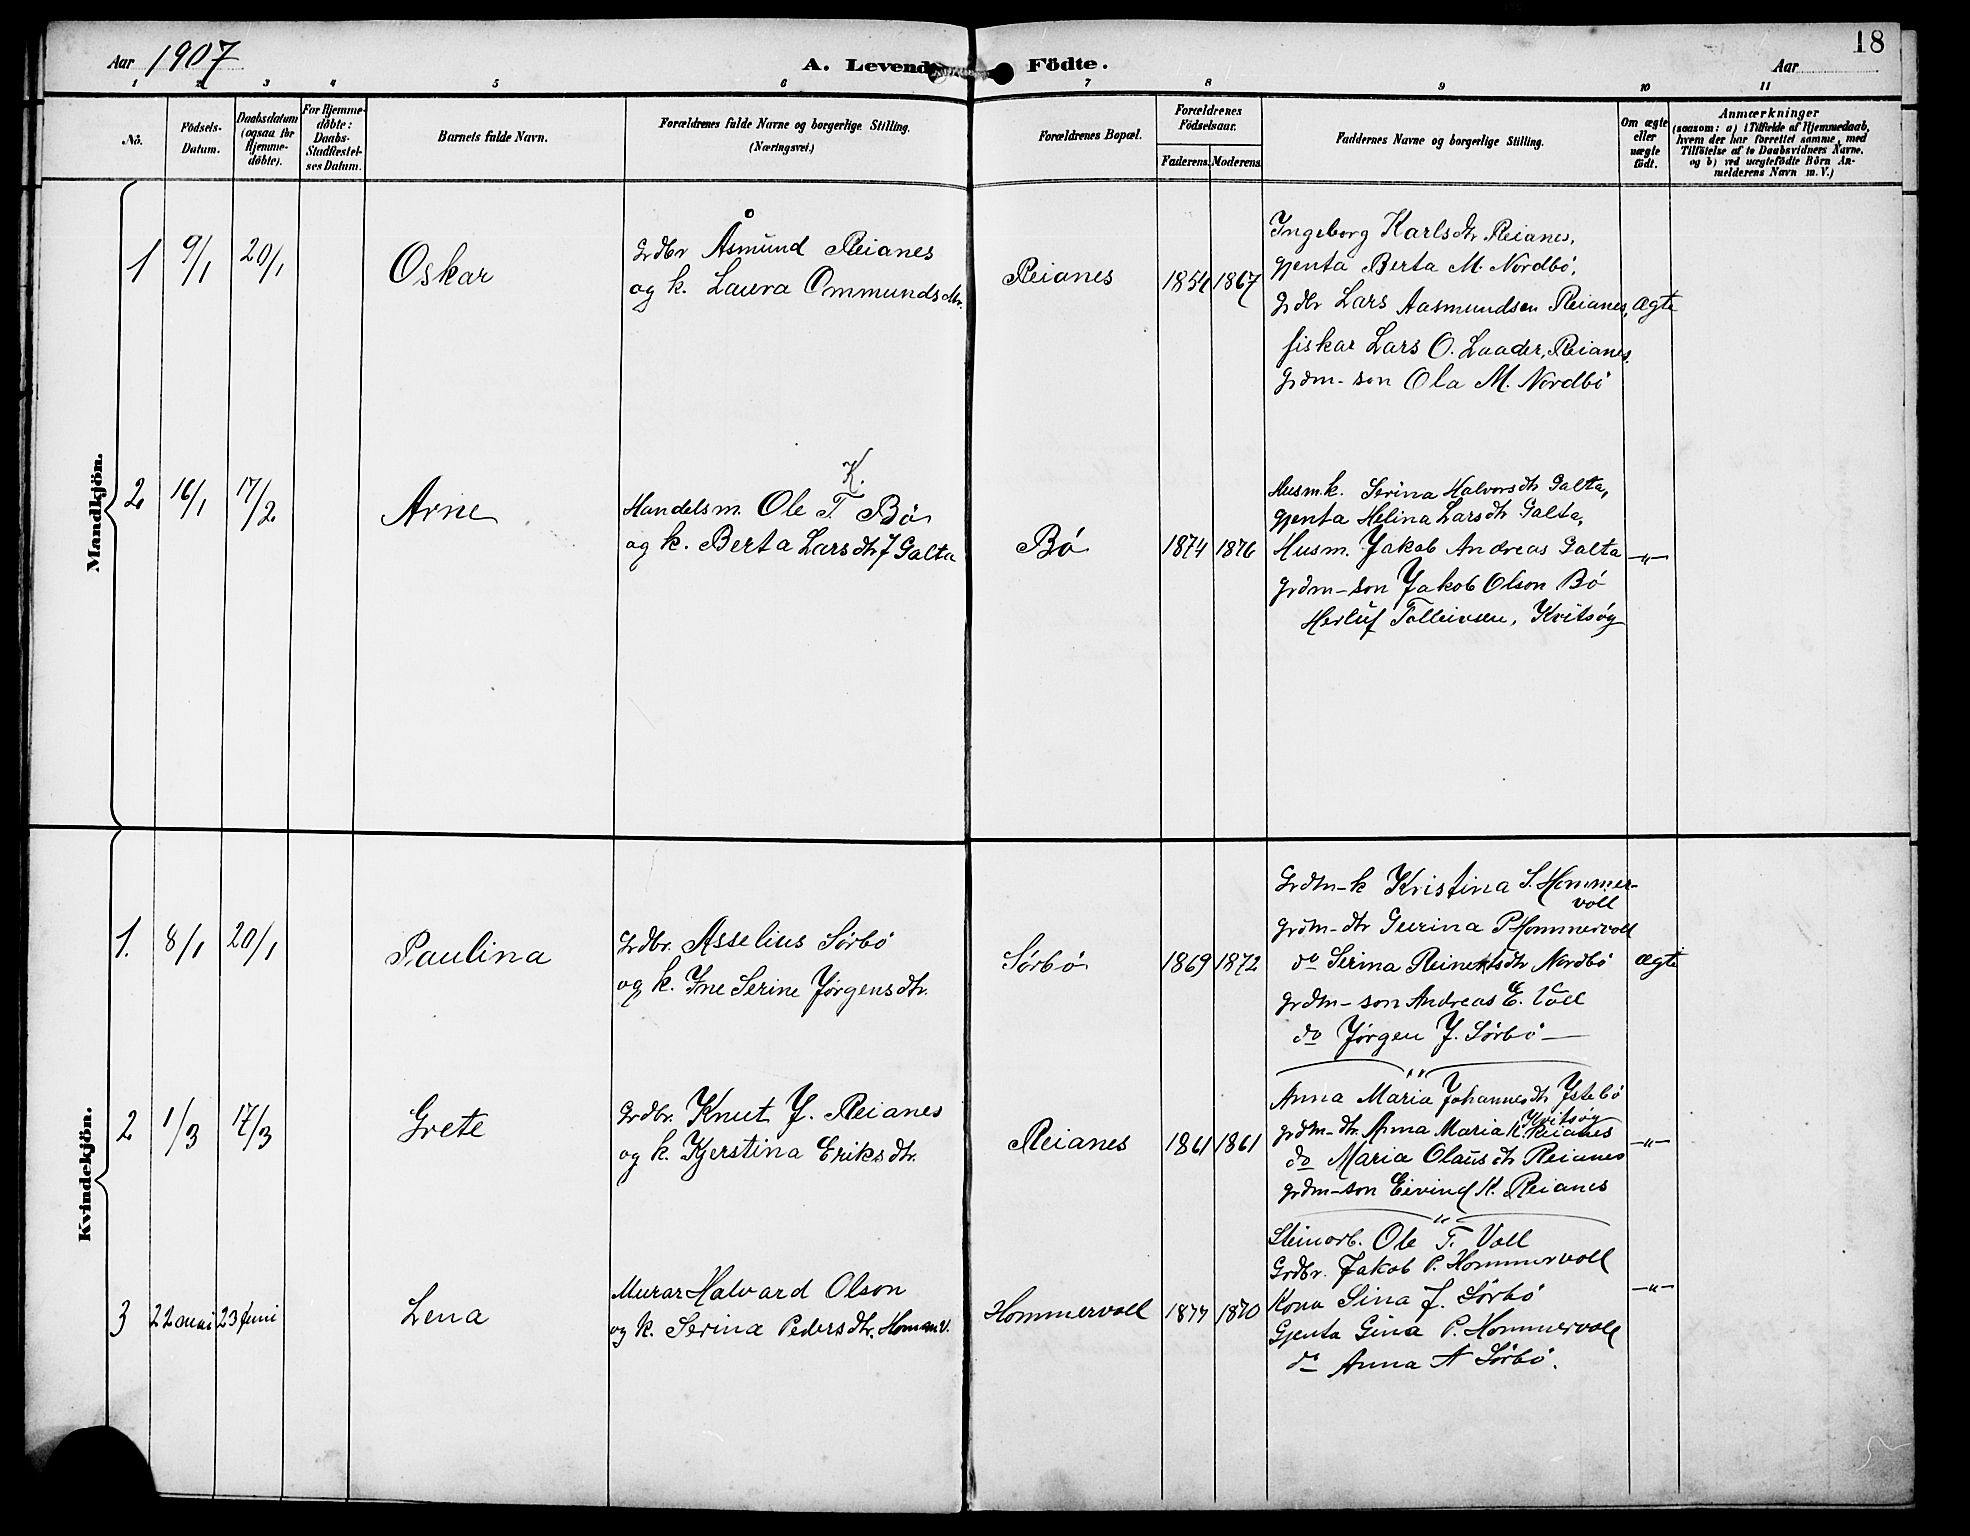 18
Aar 1907
A. Levende Födte.
Aar
1 2 3 4 5 6 7 8 9 10 11
No.
Födsels-Datum.
Daabsdatum (ogsaa for Hjemmedöbte).
For Hjemmedöbte: Daabs-Stadfæstelses Datum.
Barnets fulde Navn.
Forældrenes fulde Navne og borgerlige Stilling. (Næringsvei.)
Forældrenes Bopæl.
Forældrenes Födselsaar.
Faderens. Moderens.
Faddernes Navne og borgerlige Stilling.
Om ægte eller uægte födt.
Anmærkninger
(saasom: a) i Tilfælde af Hjemmedaab,
hvem der har forrettet samme, med
Tilföielse af to Daabsvidners Navne.
og b) ved uægtefödte Börn An-
melderens Navn m. V.)
Mandkjön.
1 9/1 20/1 Oskar
Grdbr Åsmund Reianes
og k. Laura Ommundsdtr.
Reianes 1854 1867
Ingeborg Karlsdtr Reianes,
gjenta Berta M. Nordbö,
Grdbr Lars Aasmundsen Reianes, Ægte
fiskar Lars O. Laader, Reianes.
grdm-son Ola M. Nordbö
2 16/1 17/2 Arne
K.
Handelsm. Ole T Bö
og k. Berta Larsdtr f Galta
Bö 1874 1876
Husm.k. Serina Halvorsdtr Galta,
gjenta Helina Larsdtr Galta,
Husm. Jakob Andreas Galta -"-
grdm-son Jakob Olson Bö
Herluf Tolleivsen, Kvitsøy
Kvindekjön.
1. 8/1 20/1 Paulina
Grdbr. Asselius Sörbö
og k. Ine Serine Jörgensdtr.
Sörbö 1869 1872
Grdm-k Kristina S. Hommer-
voll
grdm-dtr Geerina P Hommervoll
do Serina Reinertsdtr Nordbö ægte
grdm-son Andreas E. Voll
do Jörgen J. Sörbö
"
2 1/3 17/3 Grete
Grdbr. Knut J. Reianes
og k. Kjerstina Eriksdtr.
Reianes 1861 1861
Anna Maria Johannesdtr Ystebö
Kvitsøy
grdm-dtr. Anna Maria K. Reianes
do Maria Olausdtr Reianes -"-
grdm-son Eivind K. Reianes
"
3 22 mai 23 juni Lena
Murar Halvard Olson
og k. Serina Pedersdtr. Homm.V.
Hommervoll 1877 1870
Steinarb. Ole T. Voll
Grdbr. Jakob P. Hommervoll
Kona Sina J. Sörbö -"-
Gjenta Gina P. Hommervoll
do Anna A Sörbö.